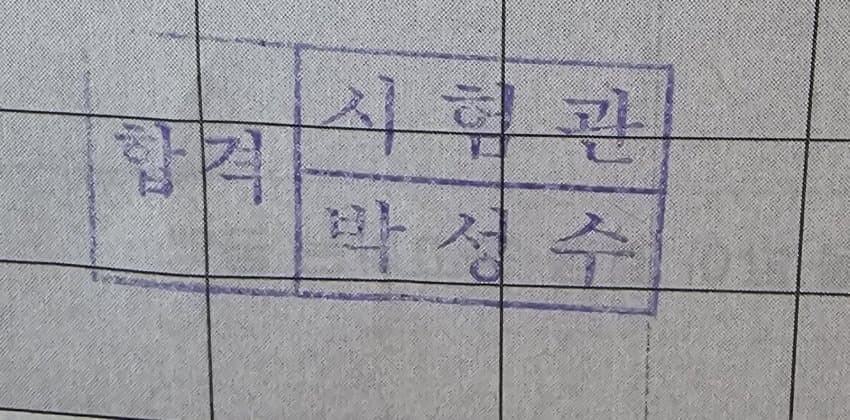 합격
시험관
박성수